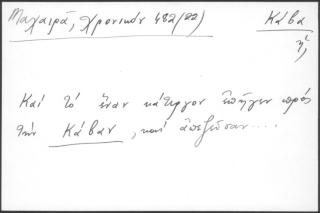 Μαχαιρά, χρονικόν 482/22) Κάβα
ἡ,
Καὶ τὸ ἕναν κάτεργον ἐπῆγεν πρὸς
τὴν Κάβαν, καὶ ἀπεζεῦσαν....